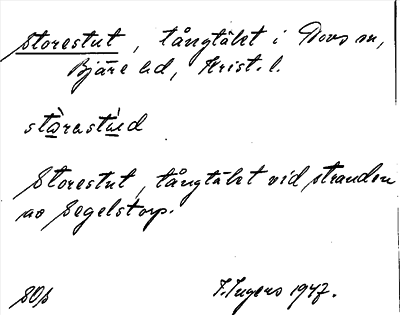 Storestut, tångtäkt i Dovs sn,
Bjäre hd, Krist. l.
stàrastùd
Storestut, tångtäkt vid stranden
av Segelstorp.
SOp
I. Ingers 1947.